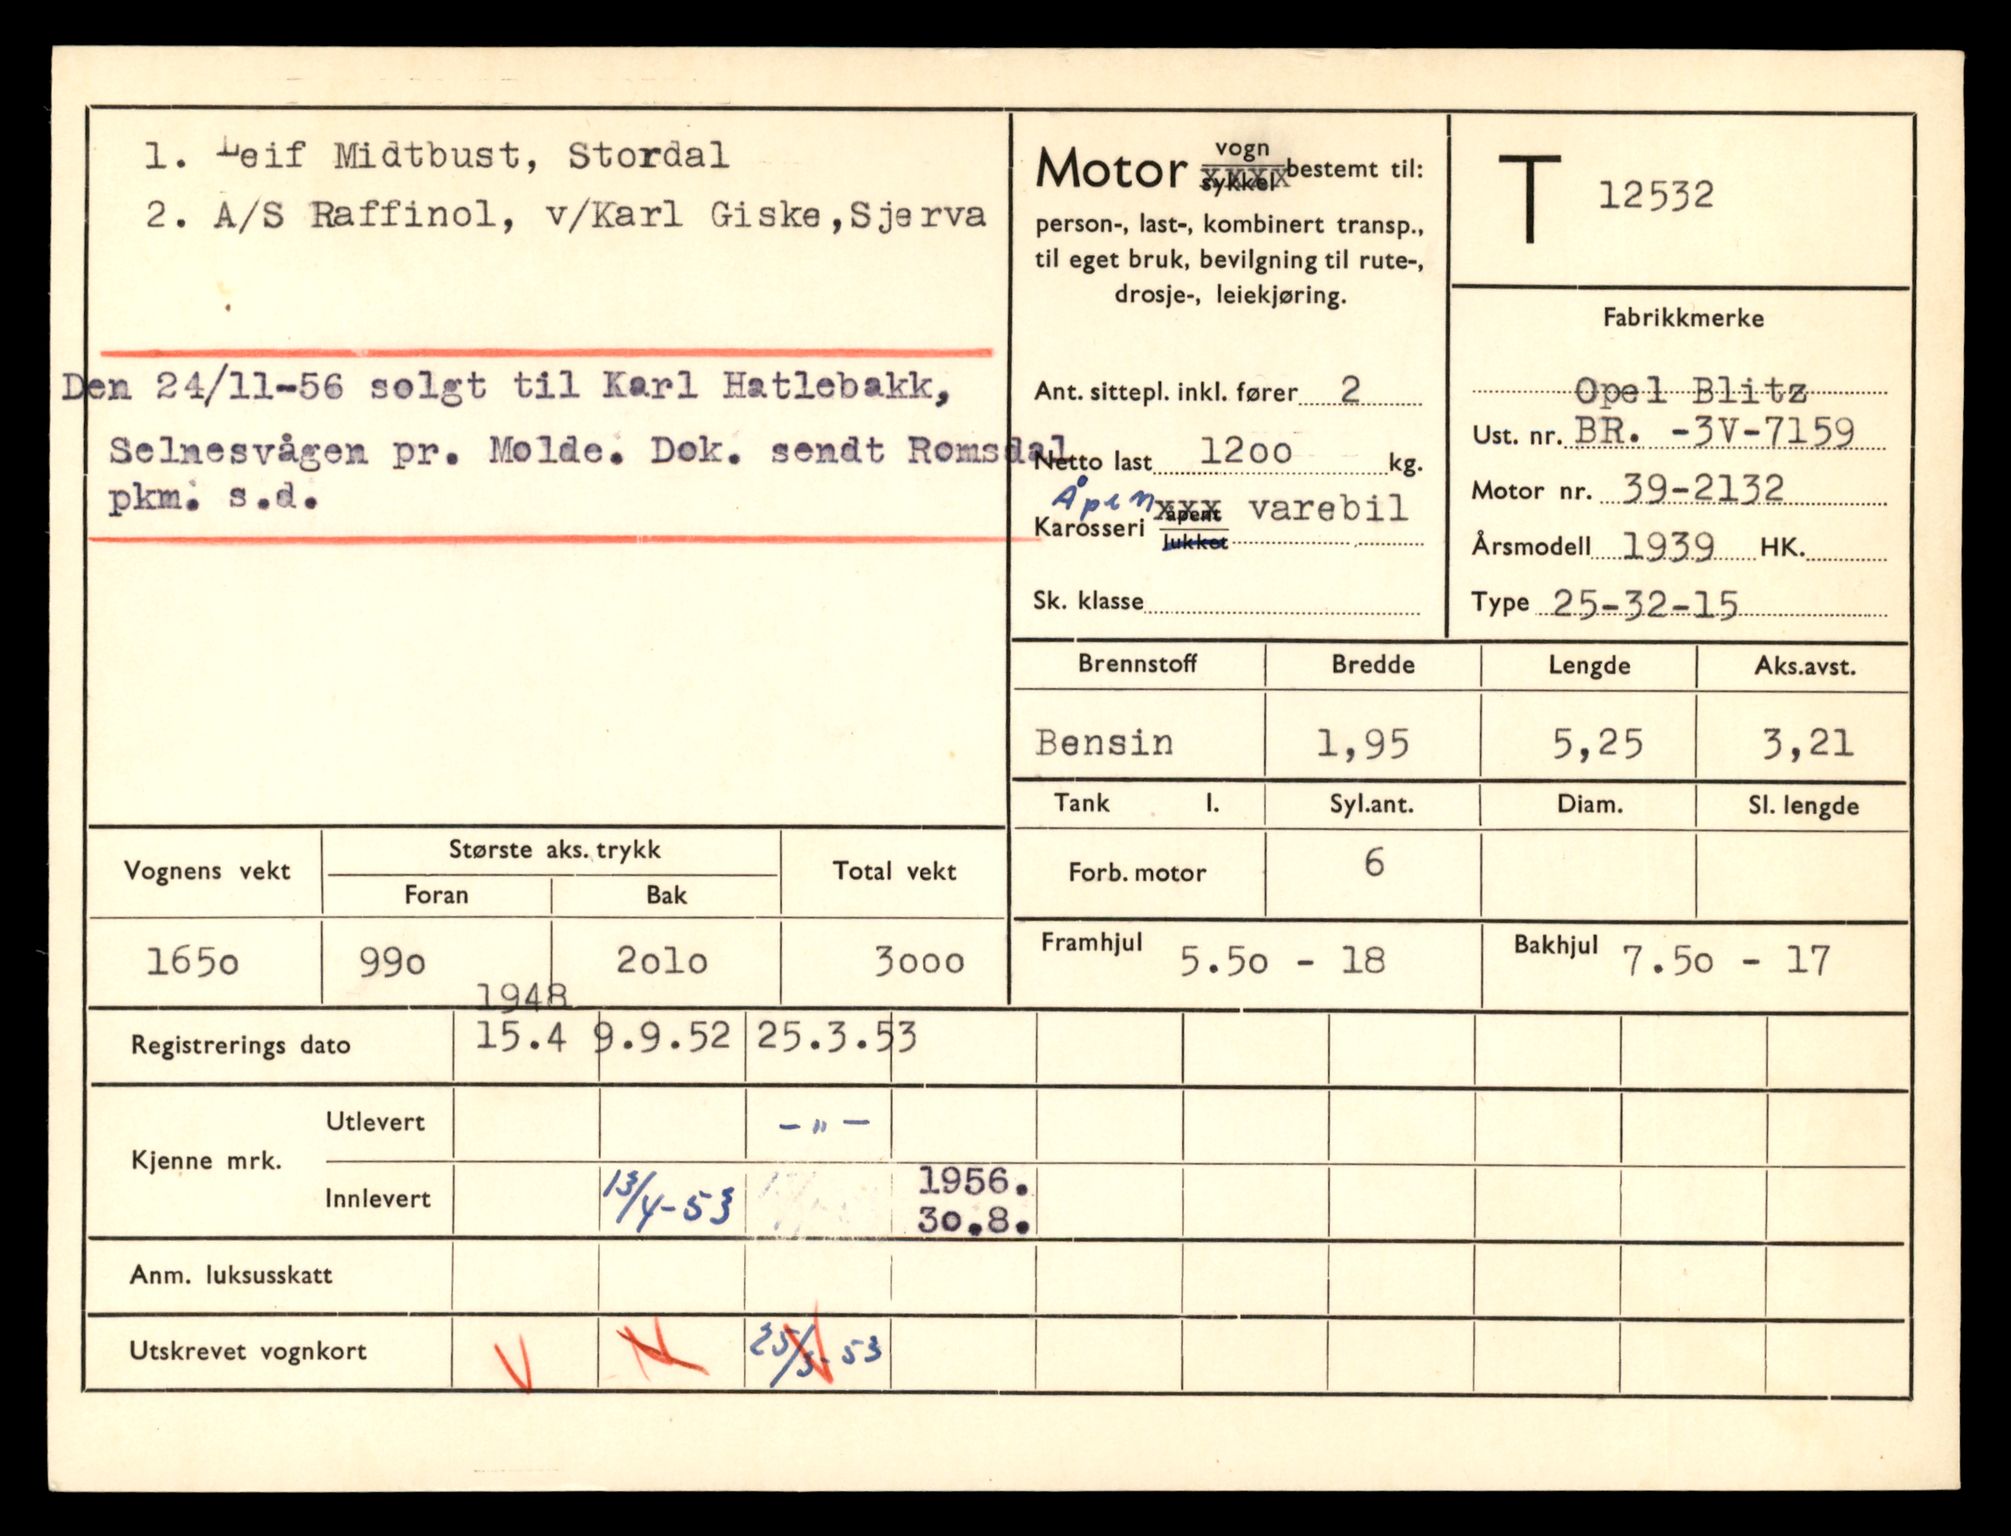 1. Leif Midtbust, Stordal
2. A/S Raffinol, v/Karl Giske,Sjerva
Den 24/11-56 solgt til Karl Hatlebakk,
Selnesvågen pr. Molde. Dok. sendt Romsdal
pkm. s.d.
Motor vogn sykkel bestemt til:
person-, last-, kombinert transp.,
til eget bruk, bevilgning til rute-,
drosje-, leiekjøring.
Ant. sittepl. inkl. fører 2
Netto last 1200 kg.
Åpen
Karosseri åpent xxx varebil
lukket
Sk. klasse
T 12532
Fabrikkmerke
Opel Blitz
Ust. nr. BR. -3V-7159
Motor nr. 39-2132
Årsmodell 1939 HK.
Type 25-32-15
Brennstoff Bredde Lengde Aks.avst.
Bensin 1,95 5,25 3,21
Tank l. Syl.ant. Diam. Sl. lengde
Forb. motor 6
Framhjul 5.50 - 18 Bakhjul 7.50 - 17
Vognens vekt Største aks. trykk Total vekt
Foran Bak
1650 990 2010 3000
1948
Registrerings dato 15.4 9.9.52 25.3.53
Kjenne mrk. Utlevert - " -
Innlevert 13/4-53 1956.
30.8.
Anm. luksusskatt
Utskrevet vognkort V V 25/3-53 V